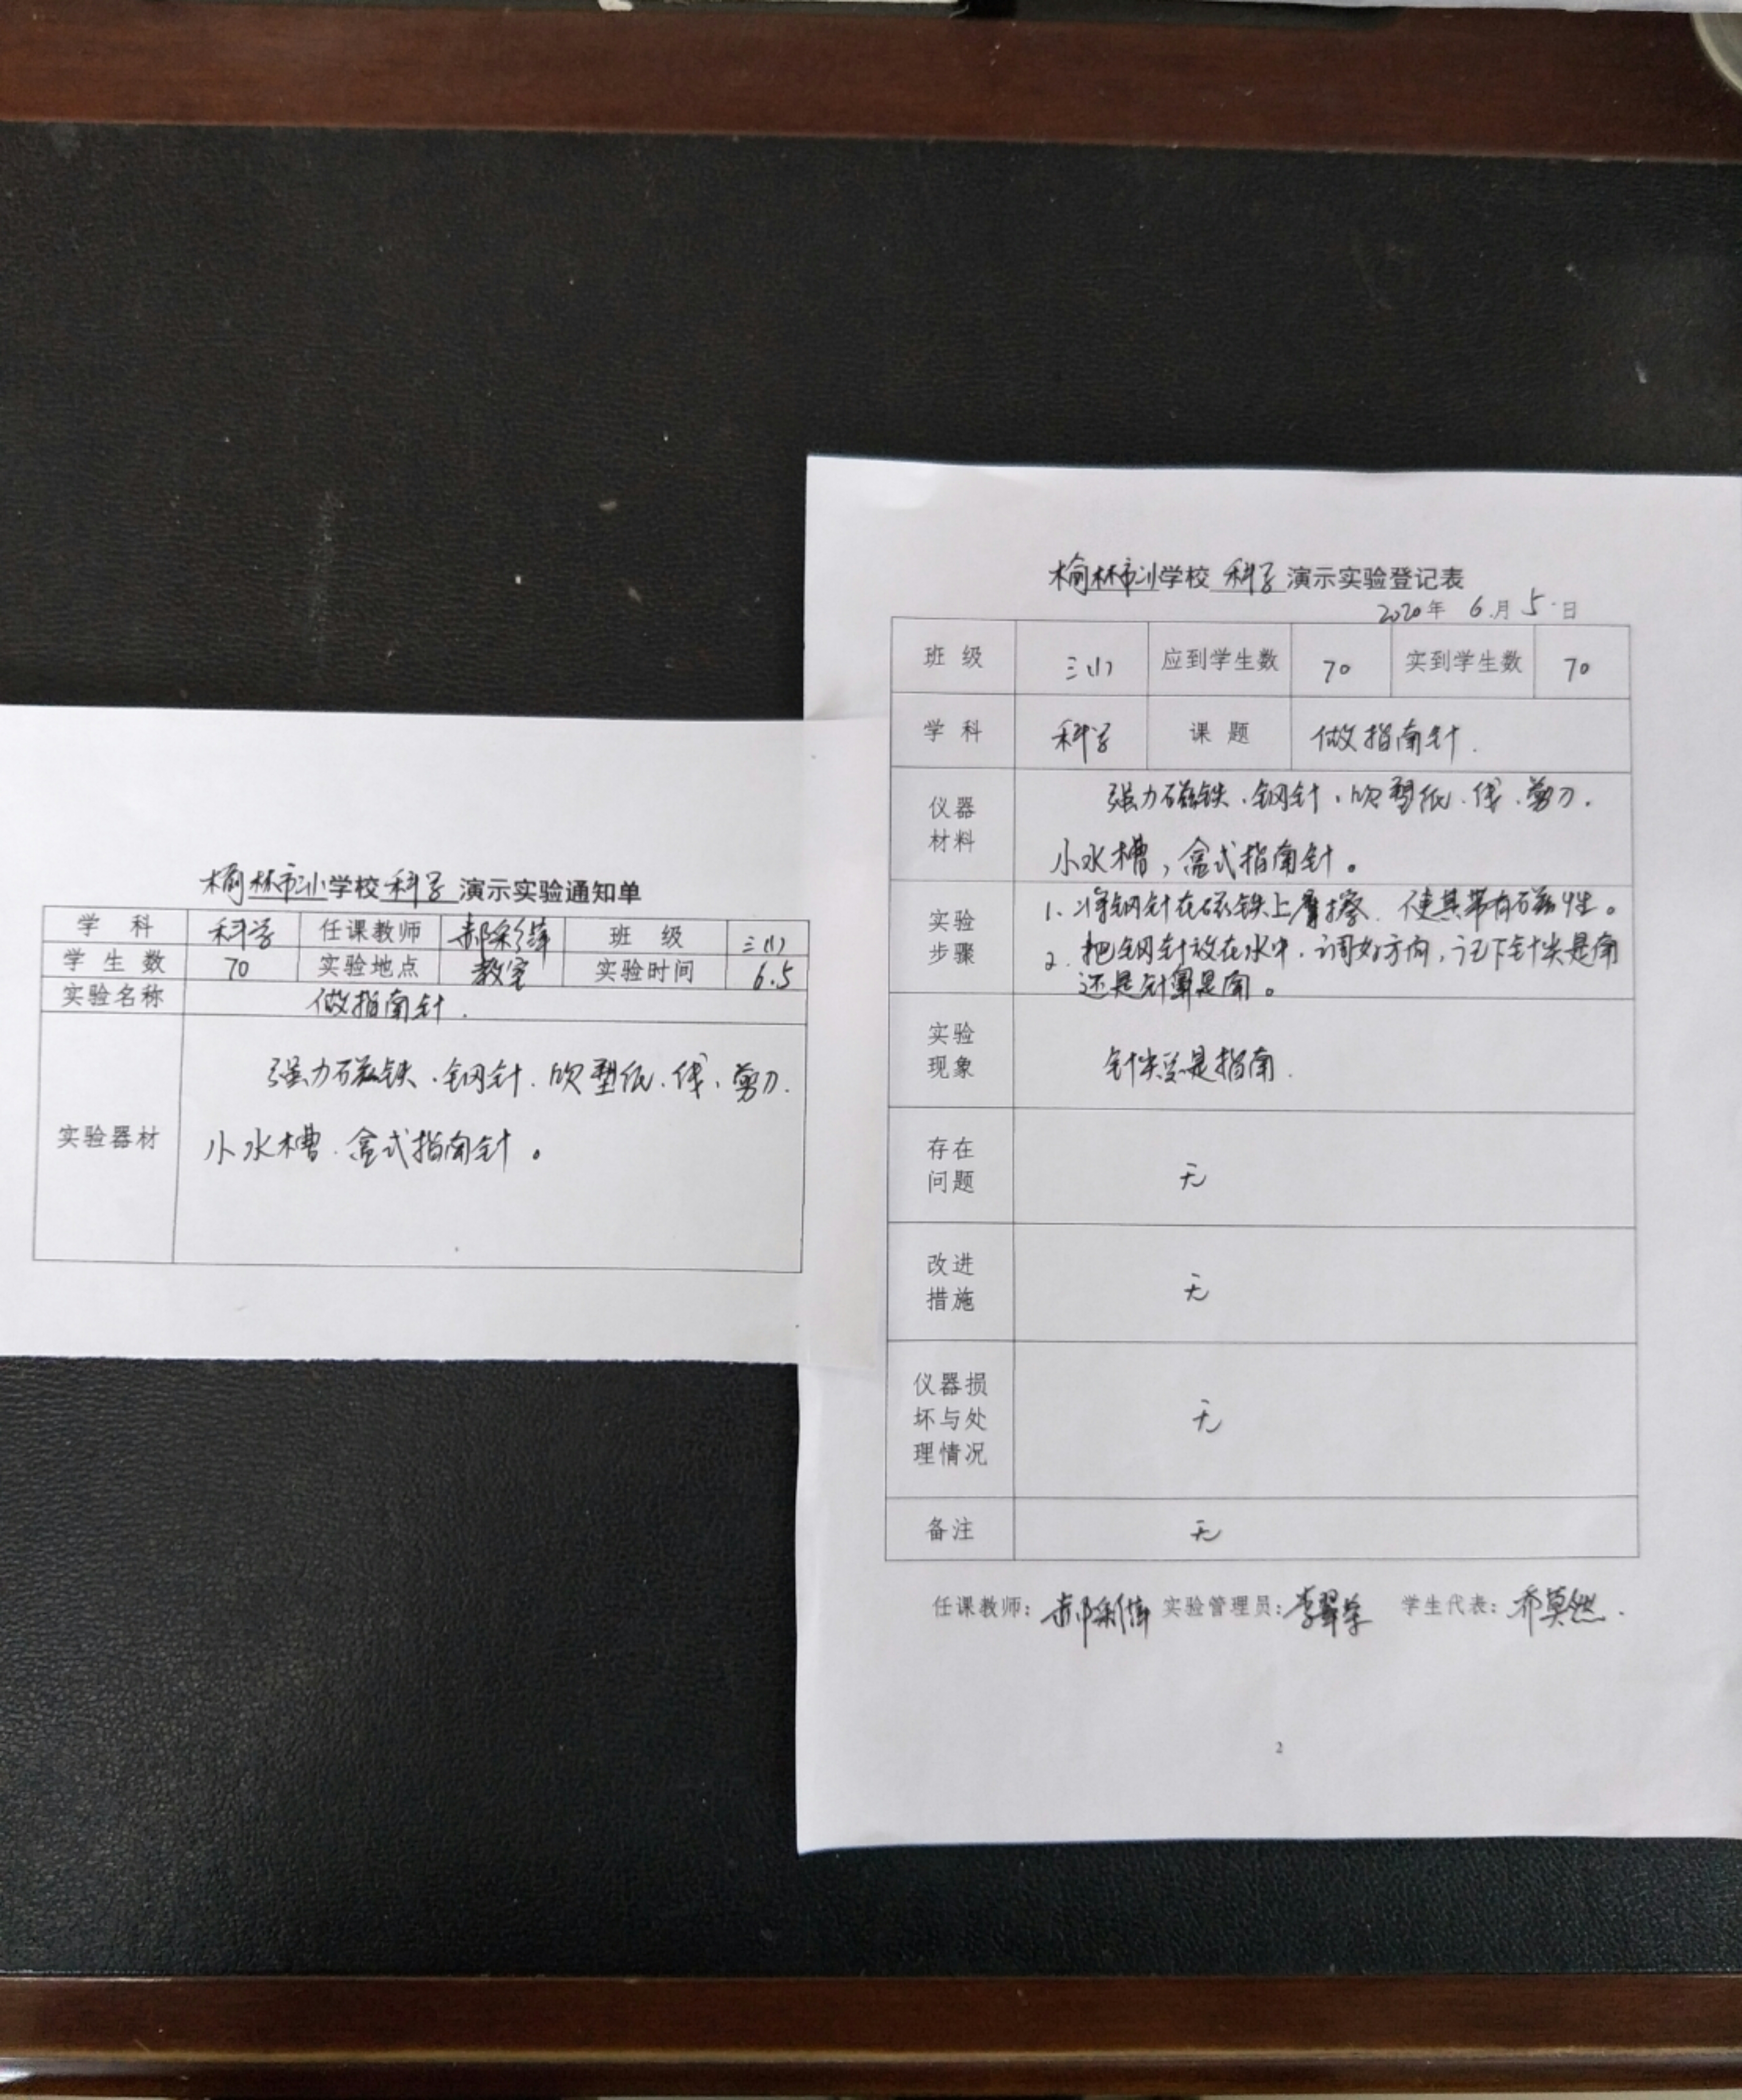 榆林市小学校 科学 演示实验通知单
学 科 科学 任课教师 郝彩伟 班 级 三(1)
学 生 数 70 实验地点 教室 实验时间 6.5
实验名称 做指南针.
实验器材 强力磁铁.钢针.吹塑纸.线、剪刀.
小水槽.盒式指南针。
榆林市小学校 科学 演示实验登记表
2020年 6月 5日
班 级 三(1) 应到学生数 70 实到学生数 70
学 科 科学 课 题 做指南针.
仪器
材料
强力磁铁.钢针.吹塑纸.线.剪刀.
小水槽,盒式指南针。
实验
步骤
1.将钢针在磁铁上摩擦.使其带有磁性。
2.把钢针放在水中.调好方向,记下针尖是南
还是针鼻是南。
实验
现象
针尖总是指南.
存在
问题
无
改进
措施
无
仪器损
坏与处
理情况
无
备注 无
任课教师: 郝彩伟 实验管理员: 李翠 学生代表: 乔莫然.
2